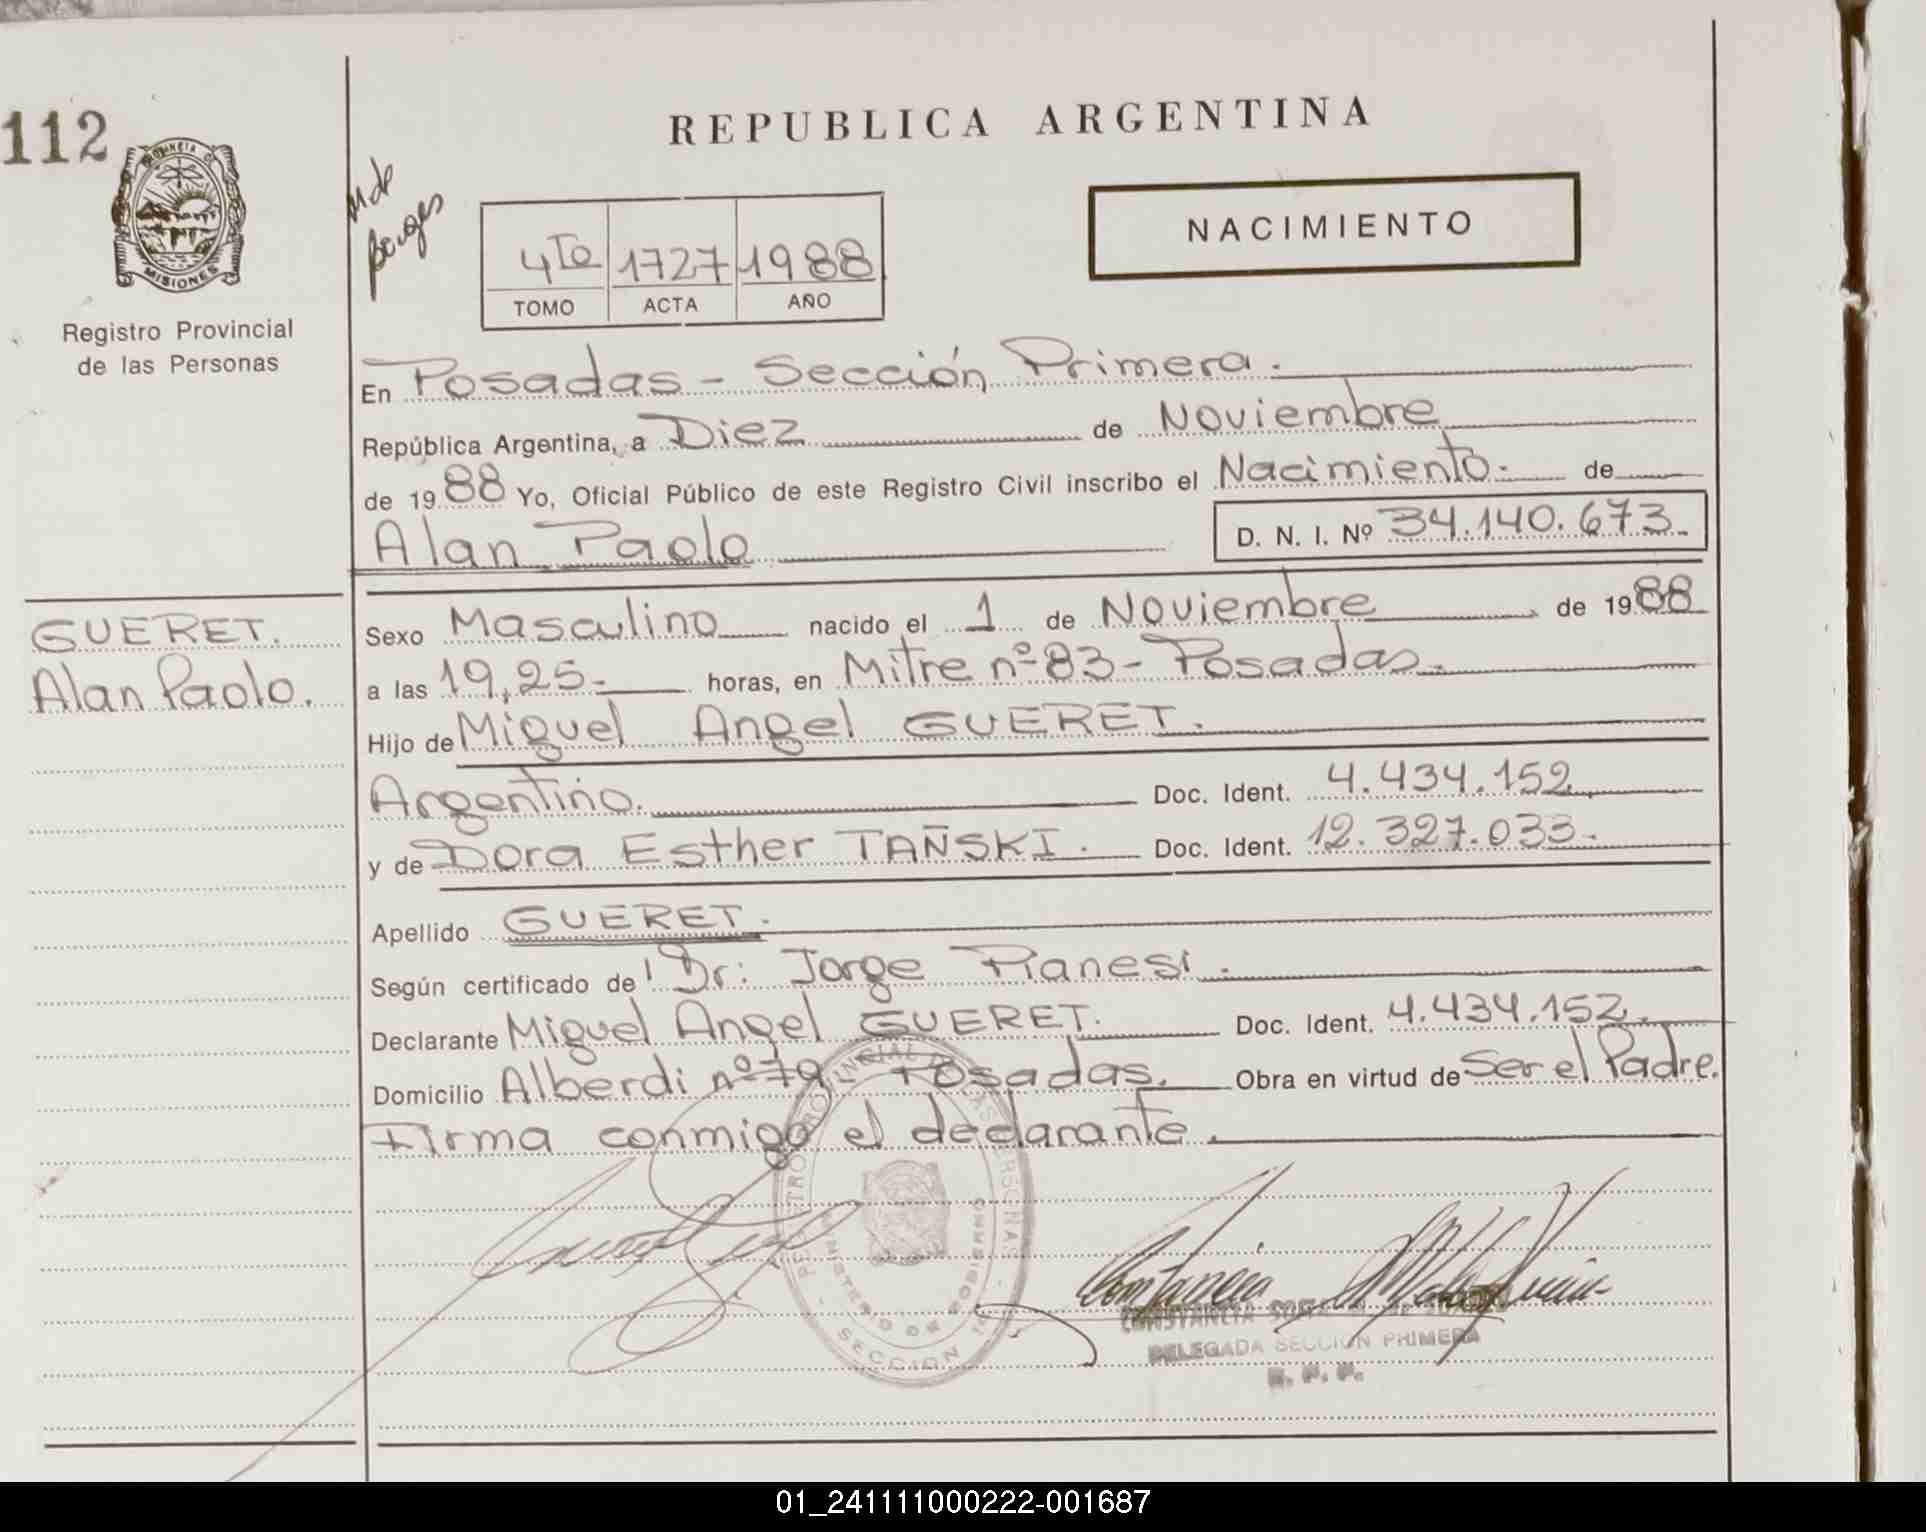 112
PROVINCIA D
MISIONES
Registro Provincial
de las Personas
REPUBLICA ARGENTINA
4to 1727 1988
TOMO ACTA AÑO
NACIMIENTO
En Posadas - Sección Primera.
República Argentina, a Diez de Noviembre
de 1988 Yo, Oficial Público de este Registro Civil inscribo el Nacimiento. de
Alan Paolo D. N. I. Nº 34.140.673.
GUERET.
Alan Paolo.
Sexo Masculino nacido el 1 de Noviembre de 1988
a las 19,25.- horas, en Mitre nº 83 - Posadas.
Hijo de Miguel Angel GUERET.
Argentino. Doc. Ident. 4.434.152
y de Dora Esther TAÑSKI. Doc. Ident. 12.327.033.
Apellido GUERET.
Según certificado de Dr: Jorge Pianesi.
Declarante Miguel Angel GUERET. Doc. Ident. 4.434.152.
Domicilio Alberdi nº 79 - Posadas. Obra en virtud de Ser el Padre.
Firma conmigo el declarante.
REGISTRO PROVINCIAL DE LAS PERSONAS
MINISTERIO DE GOBIERNO
SECCION 1ª
CONSTANCIA
DELEGADA SECCION PRIMERA
R. P. P.
01_241111000222-001687